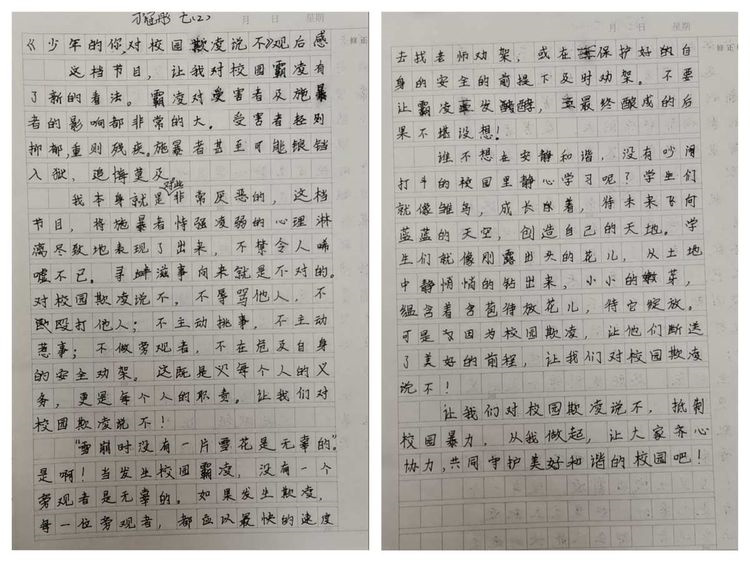 七(2)
月 日 星期
《少年的你,对校园欺凌说不》观后感
这档节目，让我对校园霸凌有
了新的看法。霸凌对受害者及施暴
者的影响都非常的大。受害者轻则
抑郁,重则残疾。施暴者甚至可能锒铛
入狱，追悔莫及。
我本身就是对此非常厌恶的，这档
节目，将施暴者恃强凌弱的心理淋
漓尽致地表现了出来，不禁令人唏
嘘不已。寻衅滋事向来就是不对的。
对校园欺凌说不，不辱骂他人，不
殴打他人；不主动挑事，不主动
惹事；不做旁观者，不在危及自身
的安全劝架。这既是每个人的义
务，更是每个人的职责。让我们对
校园欺凌说不！
“雪崩时没有一片雪花是无辜的”
是啊！当发生校园霸凌，没有一个
旁观者是无辜的。如果发生欺凌，
每一位旁观者，都应以最快的速度
月 日 星期
修正
去找老师劝架，或在保护好的自
身的安全的前提下及时劝架。不要
让霸凌发酵，最终酿成的后
果不堪设想！
谁不想在安静和谐，没有吵闹
打斗的校园里静心学习呢？学生们
就像雏鸟，成长着，待未来飞向
蓝蓝的天空，创造自己的天地。学
生们就像刚露出头的花儿，从土地
中静悄悄的钻出来，小小的嫩芽，
蕴含着含苞待放花儿，待它绽放。
可是因为校园欺凌，让他们断送
了美好的前程，让我们对校园欺凌
说不！
让我们对校园欺凌说不，抵制
校园暴力，从我做起，让大家齐心
协力,共同守护美好和谐的校园吧！